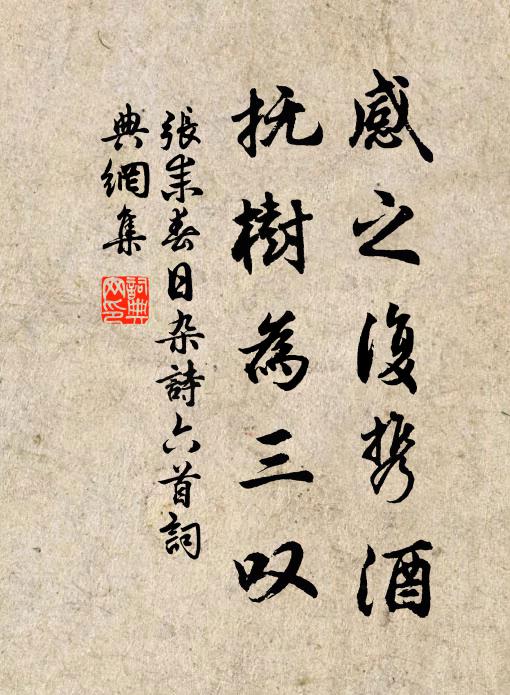 感之復携酒
抚樹為三叹
張耒春日杂詩六首詞
典網集
詞典網印